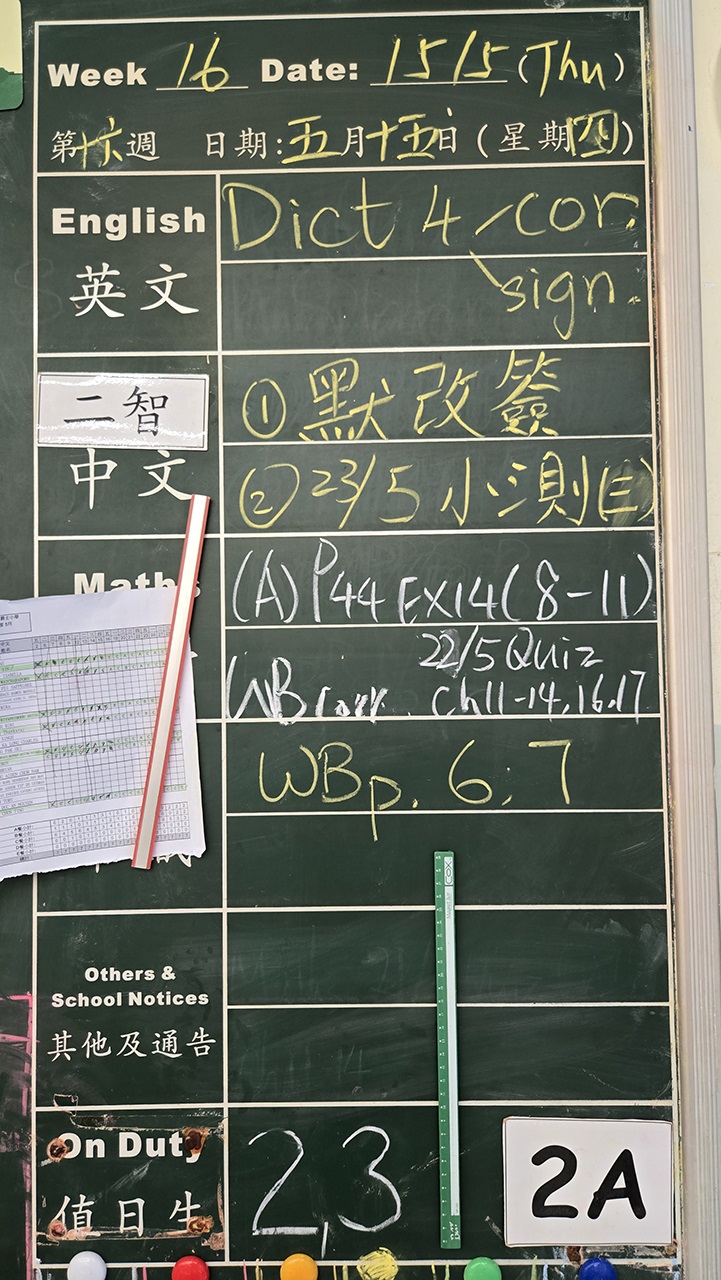 Week 16 Date: 15/5 (Thu)
第十六週 日期:五月十五日(星期四)
English
英文
Dict 4 cor.
sign.
二智
中文
① 默改簽
② 23/5 小測(三)
Maths
(A) P44 EX14(8-11)
22/5 Quiz
WB corr. Ch11-14,16,17
WB p. 6, 7
Others &
School Notices
其他及通告
On Duty
值日生
2,3
2A